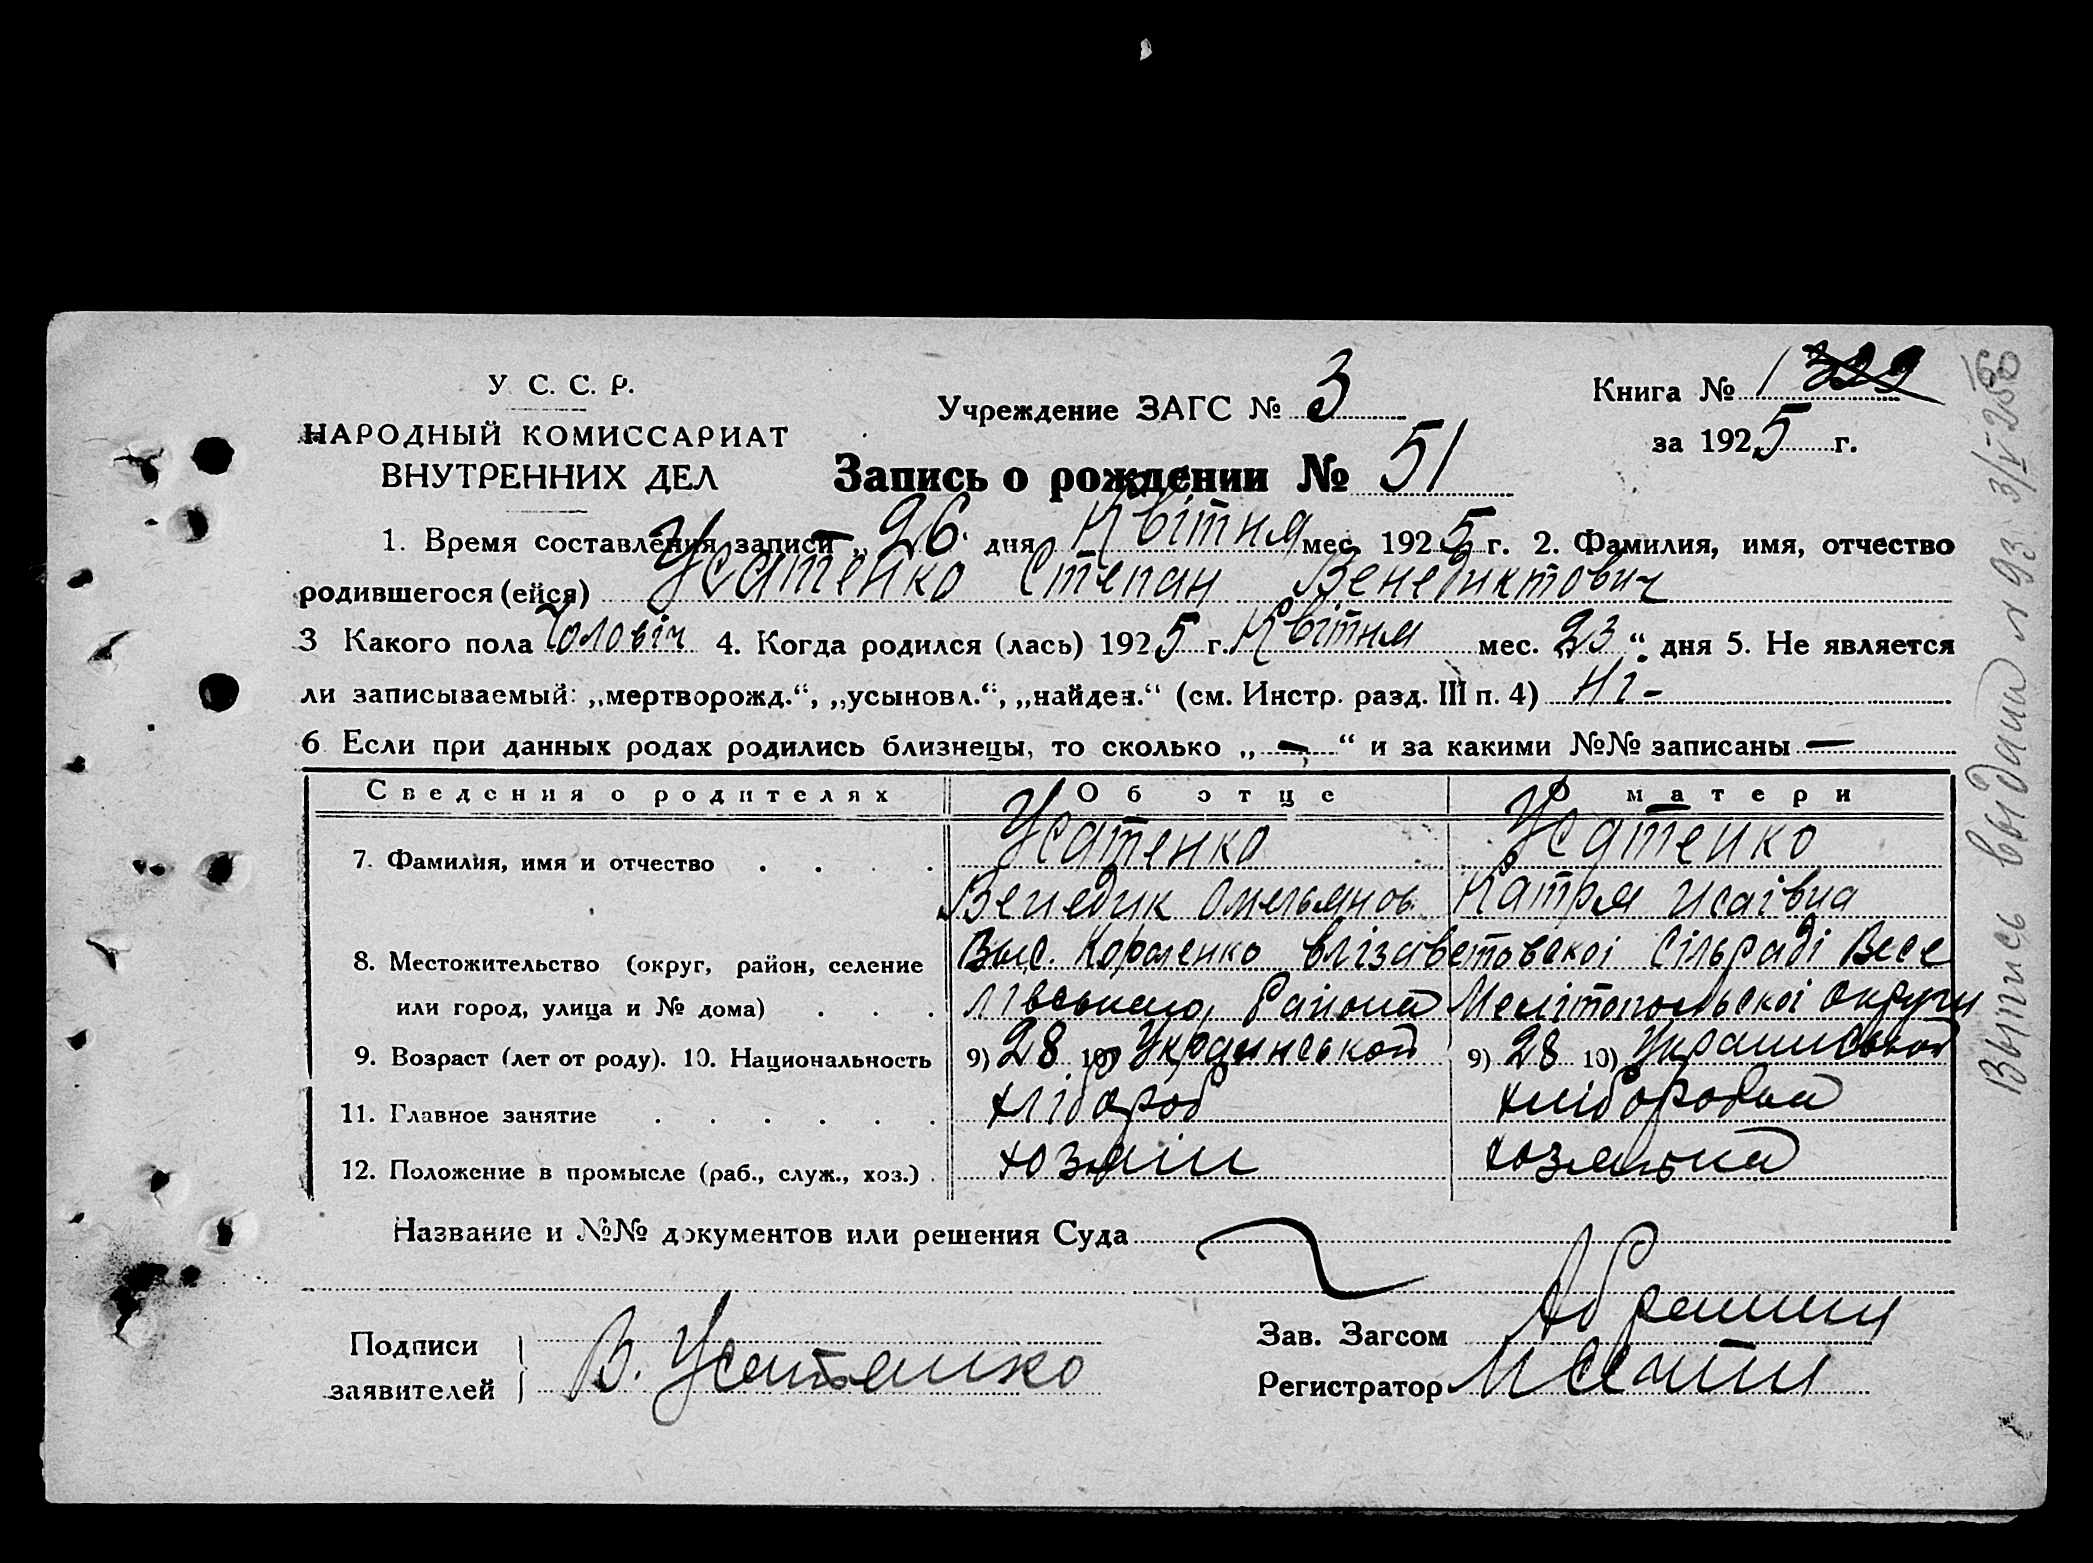 У. С. С. Р.
НАРОДНЫЙ КОМИССАРИАТ
ВНУТРЕННИХ ДЕЛ
Учреждение ЗАГС № 3
Книга № 1
за 1925 г.
Запись о рождении № 51
1. Время составления записи „ 26 дня Квітня мес. 1925 г. 2. Фамилия, имя, отчество
родившегося (ейся) Усатенко Степан Венедиктович
3 Какого пола Чоловіч 4. Когда родился (лась) 1925 г. Квітня мес. „23“ дня 5. Не является
ли записываемый: „мертворожд.“, „усыновл.“, „найден.“ (см. Инстр. разд. III п. 4) Ні -
6 Если при данных родах родились близнецы, то сколько „ — “ и за какими №№ записаны —
Сведения о родителях Об отце О матери
7. Фамилия, имя и отчество Усатенко Усатенко
Венедик Омельянов. Катря Исаівна
8. Местожительство (округ, район, селение Выс. Короленко Елізаветовскоі Сільраді Весе
или город, улица и № дома) лівського Района Мелітопольскоі округи
9. Возраст (лет от роду). 10. Национальность 9) 28 10) Украинськой 9) 28 10) Украинськой
11. Главное занятие хлібороб хліборобка
12. Положение в промысле (раб., служ., хоз.) хозяін хозяйка
Название и №№ документов или решения Суда
Подписи
заявителей В. Усатенко
Зав. Загсом
Регистратор
Выпись выдана № 93 3/V